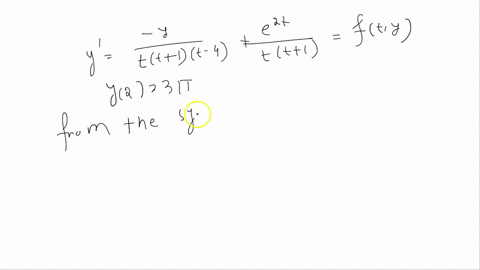 y' = -y / t(t+1)(t-4) + e^{2t} / t(t+1) = f(t,y)
y(2) > 3π
from the sy